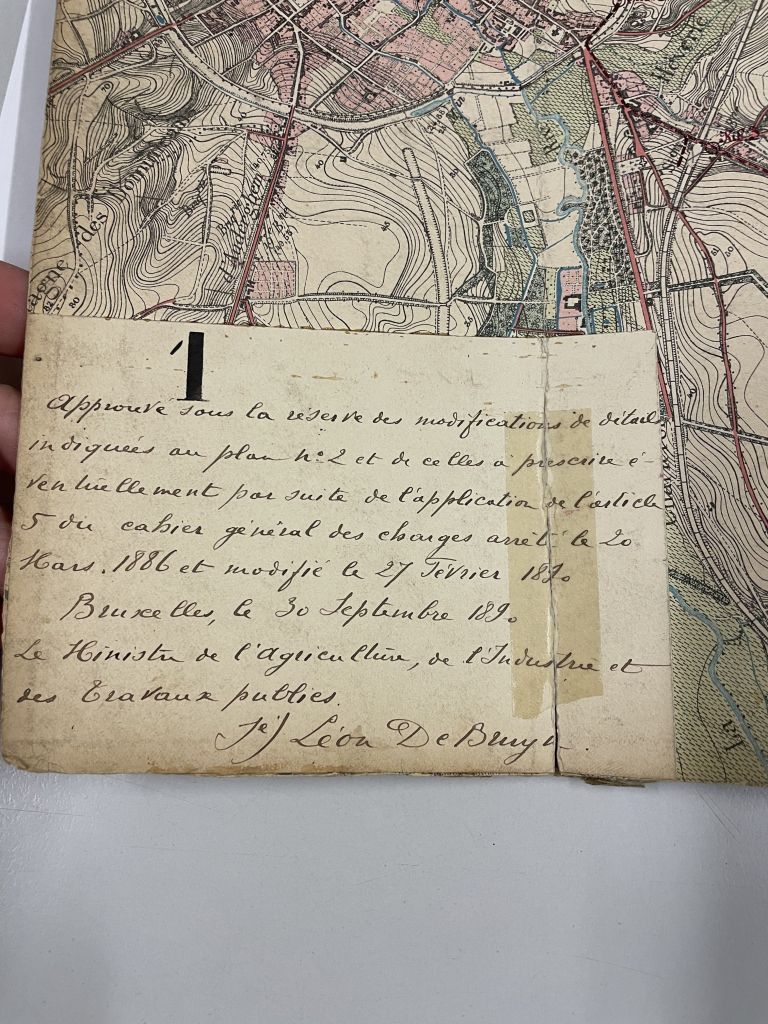 Héverlé
1
Approuvé sous la réserve des modifications de détails
indiquées au plan n° 2 et de celles à prescrire é-
ventuellement par suite de l'application de l'article
5 du cahier général des charges arrêté le 20
Mars 1886 et modifié le 27 Février 1890
Bruxelles, le 30 Septembre 1890
Le Ministre de l'Agriculture, de l'Industrie et
des Travaux publics.
Sé) Léon De Bruyn